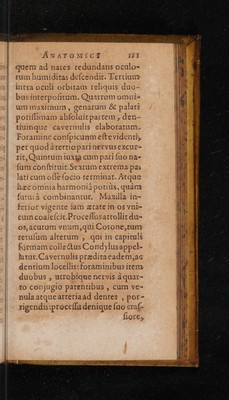 ANATOMICI 121
quem ad nates redundans oculo-
rum humiditas descendit. Tertium
intra oculi orbitam reliquis duo-
bus interpositum. Quartum omni-
um maximum, genarum & palati
potissimam absoluit partem, den-
tiumque cavernulis elaboratum.
Foramine conspicuum est evidenti,
per quod à tertio pari nervus excur-
rit, Quintum iuxta cum pari suo na-
sum constituit. Sextum extrema pa-
lati cum osse socio terminat. Atque
hæc omnia harmoniâ potius, quàm
suturâ combinantur. Maxilla in-
ferior vigente iam ætate in os vni-
cum coalescit. Processus attollit du-
os, acutum vnum, qui Corone, tum
retusum alterum, qui in capituli
formam collectus Condylus appel-
latur. Cavernulis prædita eadem, ac
dentium locellis: foraminibus item
duobus, utrobique nervis à quar-
to conjugio patentibus, cum ve-
nula atque arteria ad dentes, por-
rigendis: processu denique suo cras-
siore,